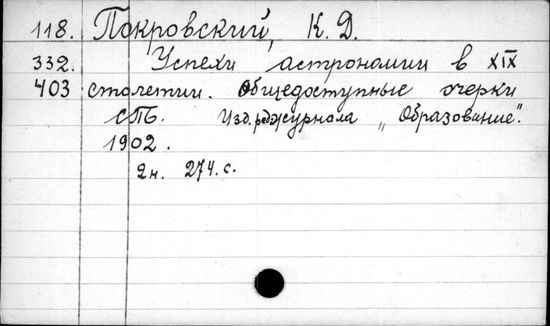 118. Покровский, К. Д.
332. Успехи астрономии в XIX
403 столетии. Общедоступные очерки
СПБ. Изд. ред. журнала „Образование".
1902.
2н. 274.с.